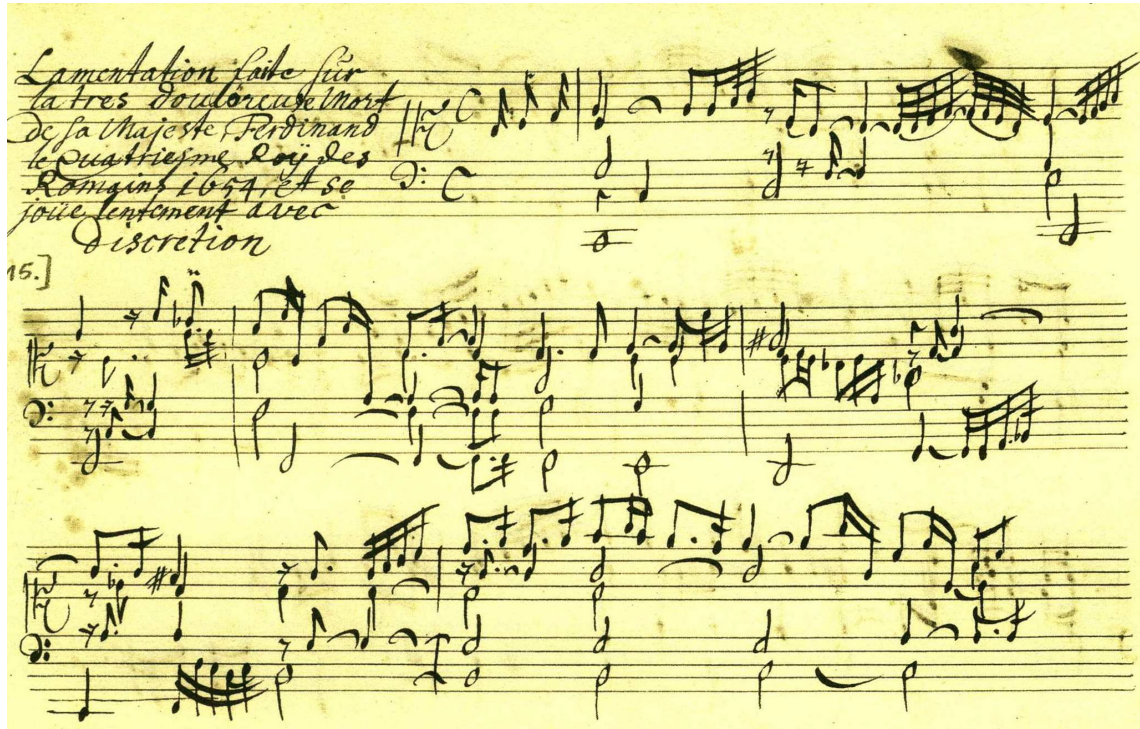 Lamentation faite sur
la tres douloreuse Mort
de sa Majeste, Ferdinand
le Quatriesme Roÿ des
Romains 1654, et se
joüe lentement avec
discretion
15.]